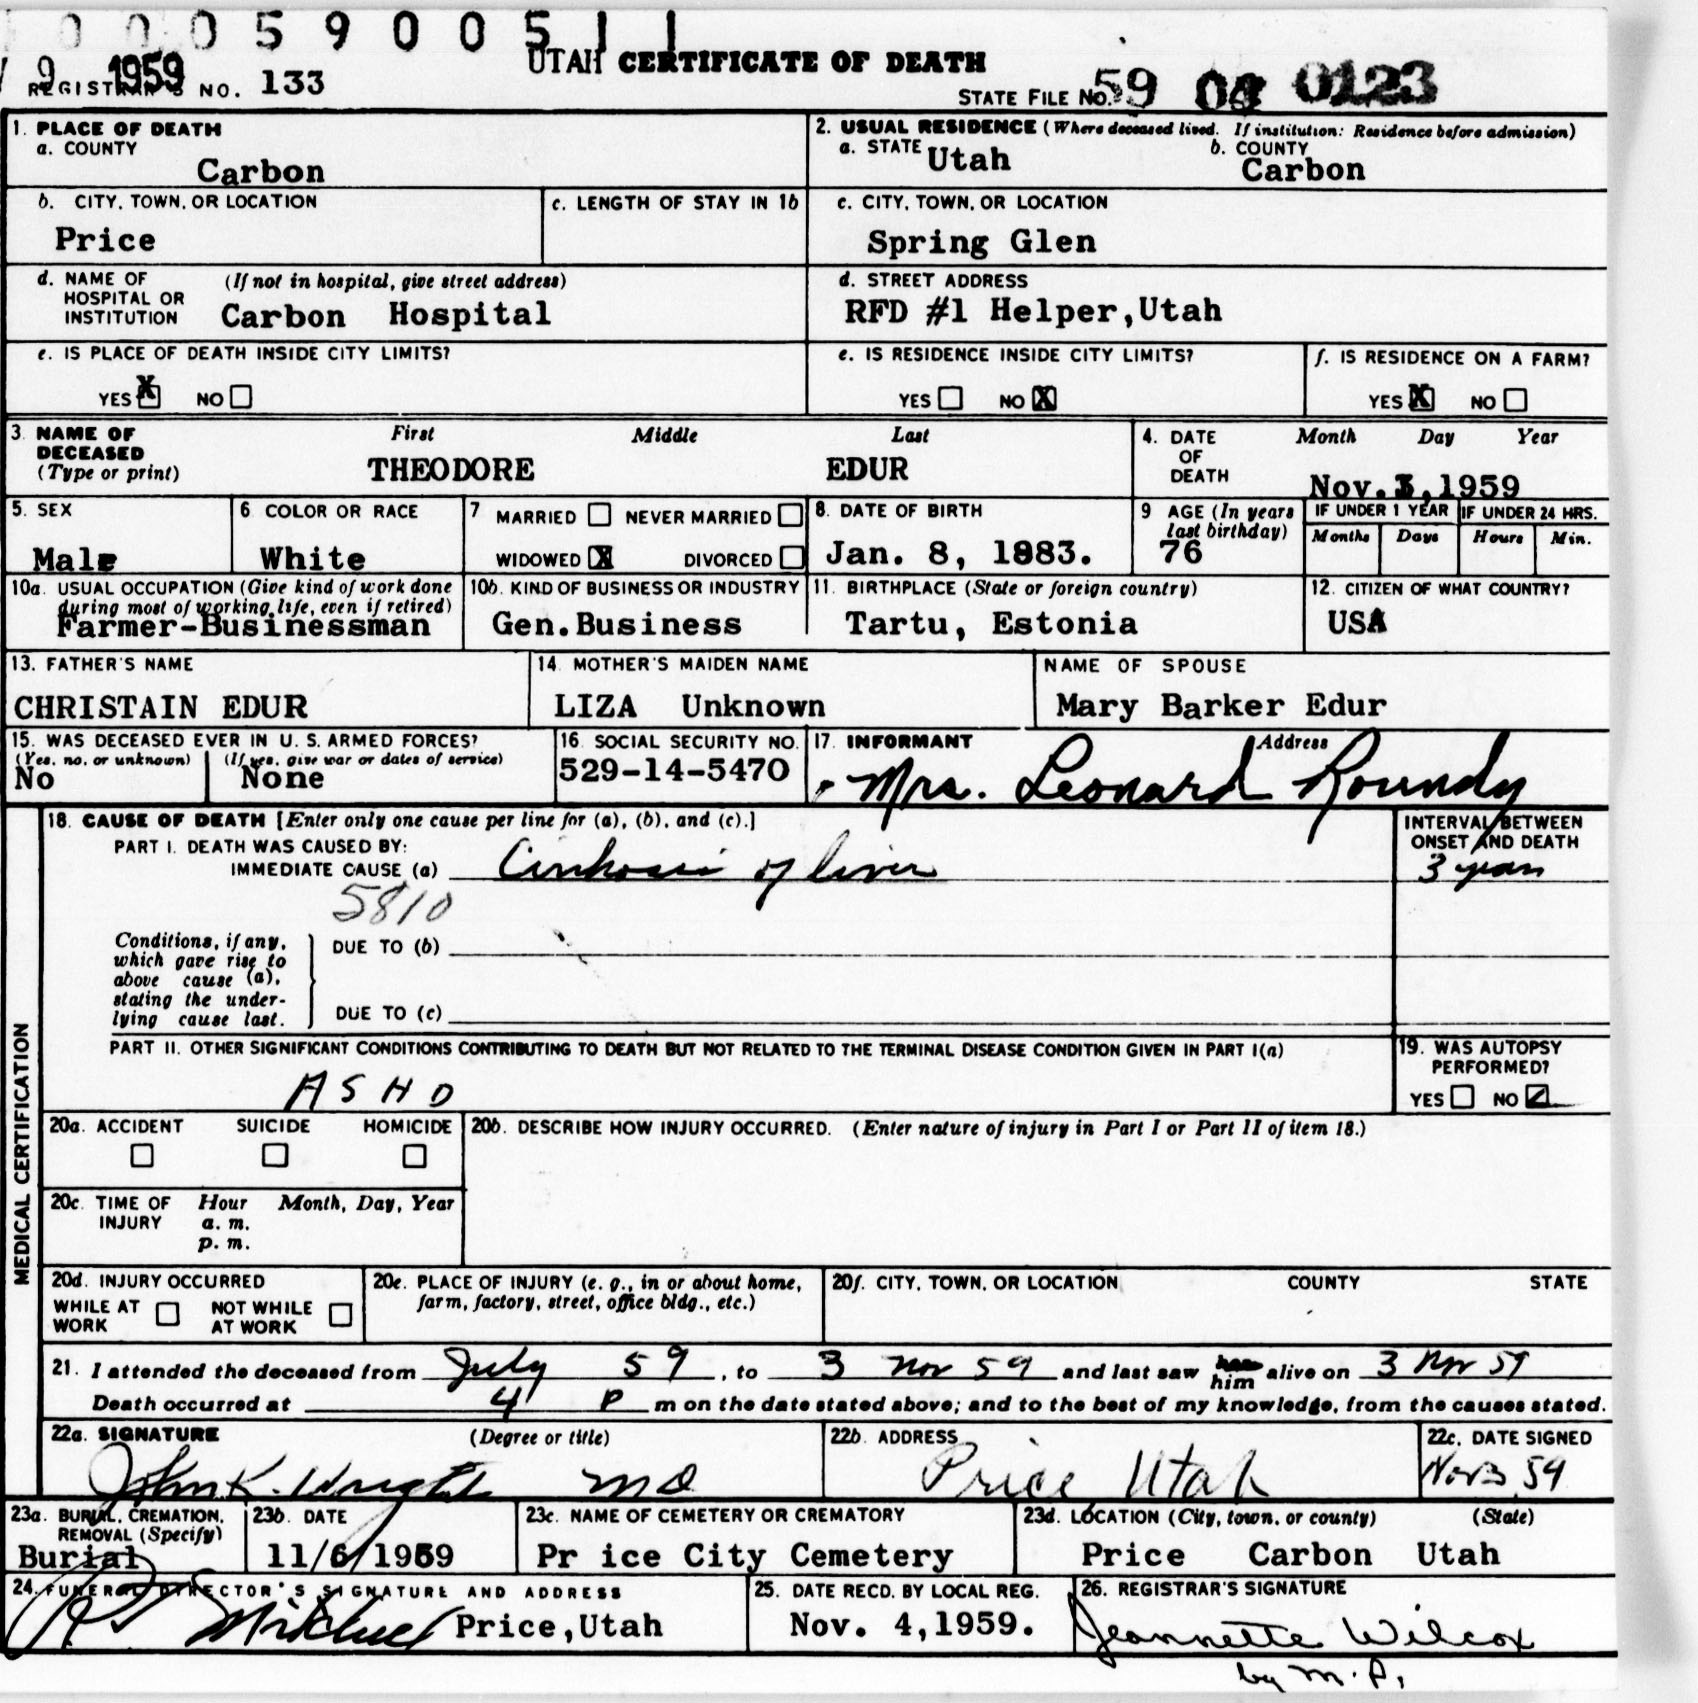 0 0 0 5 9 0 0 5 1 1
9 1959
UTAH CERTIFICATE OF DEATH
REGISTRAR'S NO. 133
STATE FILE NO. 59 0123
1. PLACE OF DEATH
a. COUNTY
Carbon
2. USUAL RESIDENCE (Where deceased lived. If institution: Residence before admission)
a. STATE Utah
b. COUNTY
Carbon
b. CITY, TOWN, OR LOCATION
Price
c. LENGTH OF STAY IN 1b
c. CITY, TOWN, OR LOCATION
Spring Glen
d. NAME OF (If not in hospital, give street address)
HOSPITAL OR
INSTITUTION Carbon Hospital
d. STREET ADDRESS
RFD #1 Helper,Utah
e. IS PLACE OF DEATH INSIDE CITY LIMITS?
YES X NO
e. IS RESIDENCE INSIDE CITY LIMITS?
YES NO X
f. IS RESIDENCE ON A FARM?
YES X NO
3. NAME OF First Middle Last
DECEASED
(Type or print) THEODORE EDUR
4. DATE Month Day Year
OF
DEATH Nov.3,1959
5. SEX
Male
6 COLOR OR RACE
White
7 MARRIED NEVER MARRIED
WIDOWED X DIVORCED
8. DATE OF BIRTH
Jan. 8, 1883.
9 AGE (In years
last birthday)
76
IF UNDER 1 YEAR IF UNDER 24 HRS.
Months Days Hours Min.
10a. USUAL OCCUPATION (Give kind of work done
during most of working life, even if retired)
Farmer-Businessman
10b. KIND OF BUSINESS OR INDUSTRY
Gen.Business
11. BIRTHPLACE (State or foreign country)
Tartu, Estonia
12. CITIZEN OF WHAT COUNTRY?
USA
13. FATHER'S NAME
CHRISTAIN EDUR
14. MOTHER'S MAIDEN NAME
LIZA Unknown
NAME OF SPOUSE
Mary Barker Edur
15. WAS DECEASED EVER IN U. S. ARMED FORCES?
(Yes, no, or unknown) (If yes, give war or dates of service)
No None
16 SOCIAL SECURITY NO.
529-14-5470
17. INFORMANT Address
Mrs. Leonard Roundy
18. CAUSE OF DEATH [Enter only one cause per line for (a), (b), and (c).]
PART I. DEATH WAS CAUSED BY:
IMMEDIATE CAUSE (a) Cirrhosis of liver
INTERVAL BETWEEN
ONSET AND DEATH
3 years
5810
Conditions, if any,
which gave rise to
above cause (a),
stating the under-
lying cause last.
DUE TO (b)
DUE TO (c)
PART II. OTHER SIGNIFICANT CONDITIONS CONTRIBUTING TO DEATH BUT NOT RELATED TO THE TERMINAL DISEASE CONDITION GIVEN IN PART I(a)
ASHD
19. WAS AUTOPSY
PERFORMED?
YES NO
MEDICAL CERTIFICATION
20a. ACCIDENT SUICIDE HOMICIDE
20b. DESCRIBE HOW INJURY OCCURRED. (Enter nature of injury in Part I or Part II of item 18.)
20c. TIME OF Hour Month, Day, Year
INJURY a. m.
p. m.
20d. INJURY OCCURRED
WHILE AT NOT WHILE
WORK AT WORK
20e. PLACE OF INJURY (e. g., in or about home,
farm, factory, street, office bldg., etc.)
20f. CITY, TOWN, OR LOCATION COUNTY STATE
21. I attended the deceased from July 59, to 3 Nov 59 and last saw her him alive on 3 Nov 59
Death occurred at 4 P m on the date stated above; and to the best of my knowledge, from the causes stated.
22a. SIGNATURE (Degree or title)
John K. Wright MD
22b. ADDRESS
Price Utah
22c. DATE SIGNED
Nov 3, 59
23a. BURIAL, CREMATION,
REMOVAL (Specify)
Burial
23b. DATE
11/6/1959
23c. NAME OF CEMETERY OR CREMATORY
Pr ice City Cemetery
23d. LOCATION (City, town, or county) (State)
Price Carbon Utah
24. FUNERAL DIRECTOR'S SIGNATURE AND ADDRESS
Mitchell Price,Utah
25. DATE RECD. BY LOCAL REG.
Nov. 4,1959.
26. REGISTRAR'S SIGNATURE
Jeannette Wilcox
by M.P.